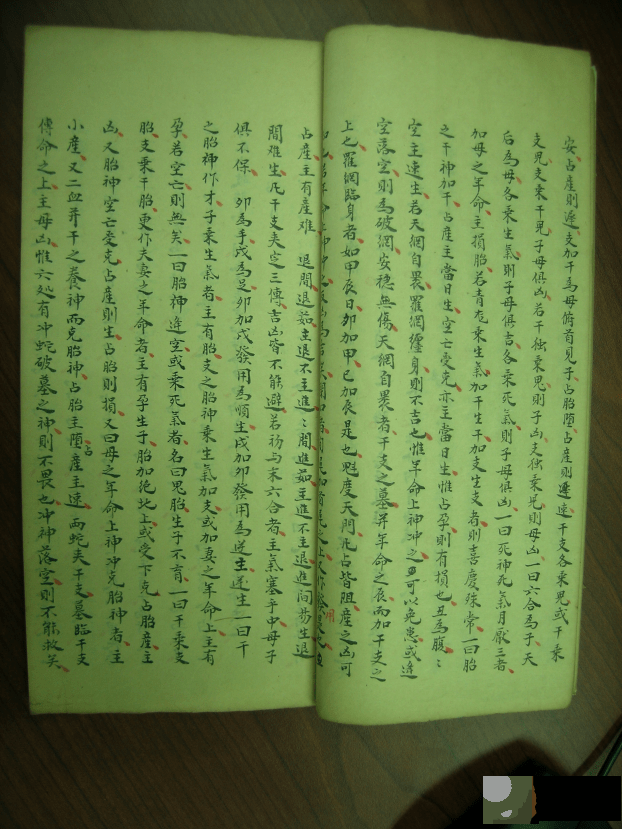 安占產則遲支加干為母俯首見子占胎堕占產則遲速干支各乘鬼或干乘
支鬼支乘干鬼子母俱凶若干独乘鬼則子凶支独乘鬼則母凶一曰六合為子天
后為母各乘生氣則子母俱吉各乘死氣則子母俱凶一曰死神死氣月厭三者
加母之年命主損胎若青龙乘生氣加干生干加支生支者則喜慶殊常一曰胎
之干神加干占產主當日生空亡受克亦主當日生惟占孕則有損也丑為腹
空主速生若天網自畏羅網纏身則不吉也惟年命上神冲之可以免患或逢
空落空則為破網安穏無傷天網自畏者干支之墓并年命之辰而加干支之
上也羅網臨身者如甲辰日卯加甲巳加辰是也魁度天門凡占皆阻產之凶可
占產主有產难退間退茹主退不主進進間進茹主進不主退進间易生退
間难生凡干支夹定三傳吉凶皆不能避若初与末六合者主氣塞于中母子
俱不保卯為手戌為足卯加戌發用為順生戌加卯發用為逆生一曰干
之胎神作才子乘生氣者主有胎支之胎神乘生氣加支或加妻之年命上主有
孕若空亡則無矣一曰胎神逢空或乘死氣者名曰鬼胎生子不育一曰干乘支
胎支乘干胎更作夫妻之年命者主有孕生子胎加絶地上或受下克占胎產主
凶又胎神空亡受克占產則生占胎則損又曰母之年命上神冲克胎神者主
小產又二血并干之養神而克胎神占胎主堕占產主速两蛇夹干支墓臨干支
傳命之上主母凶惟六处有冲蛇破墓之神則不畏也冲神落空則不能救矣